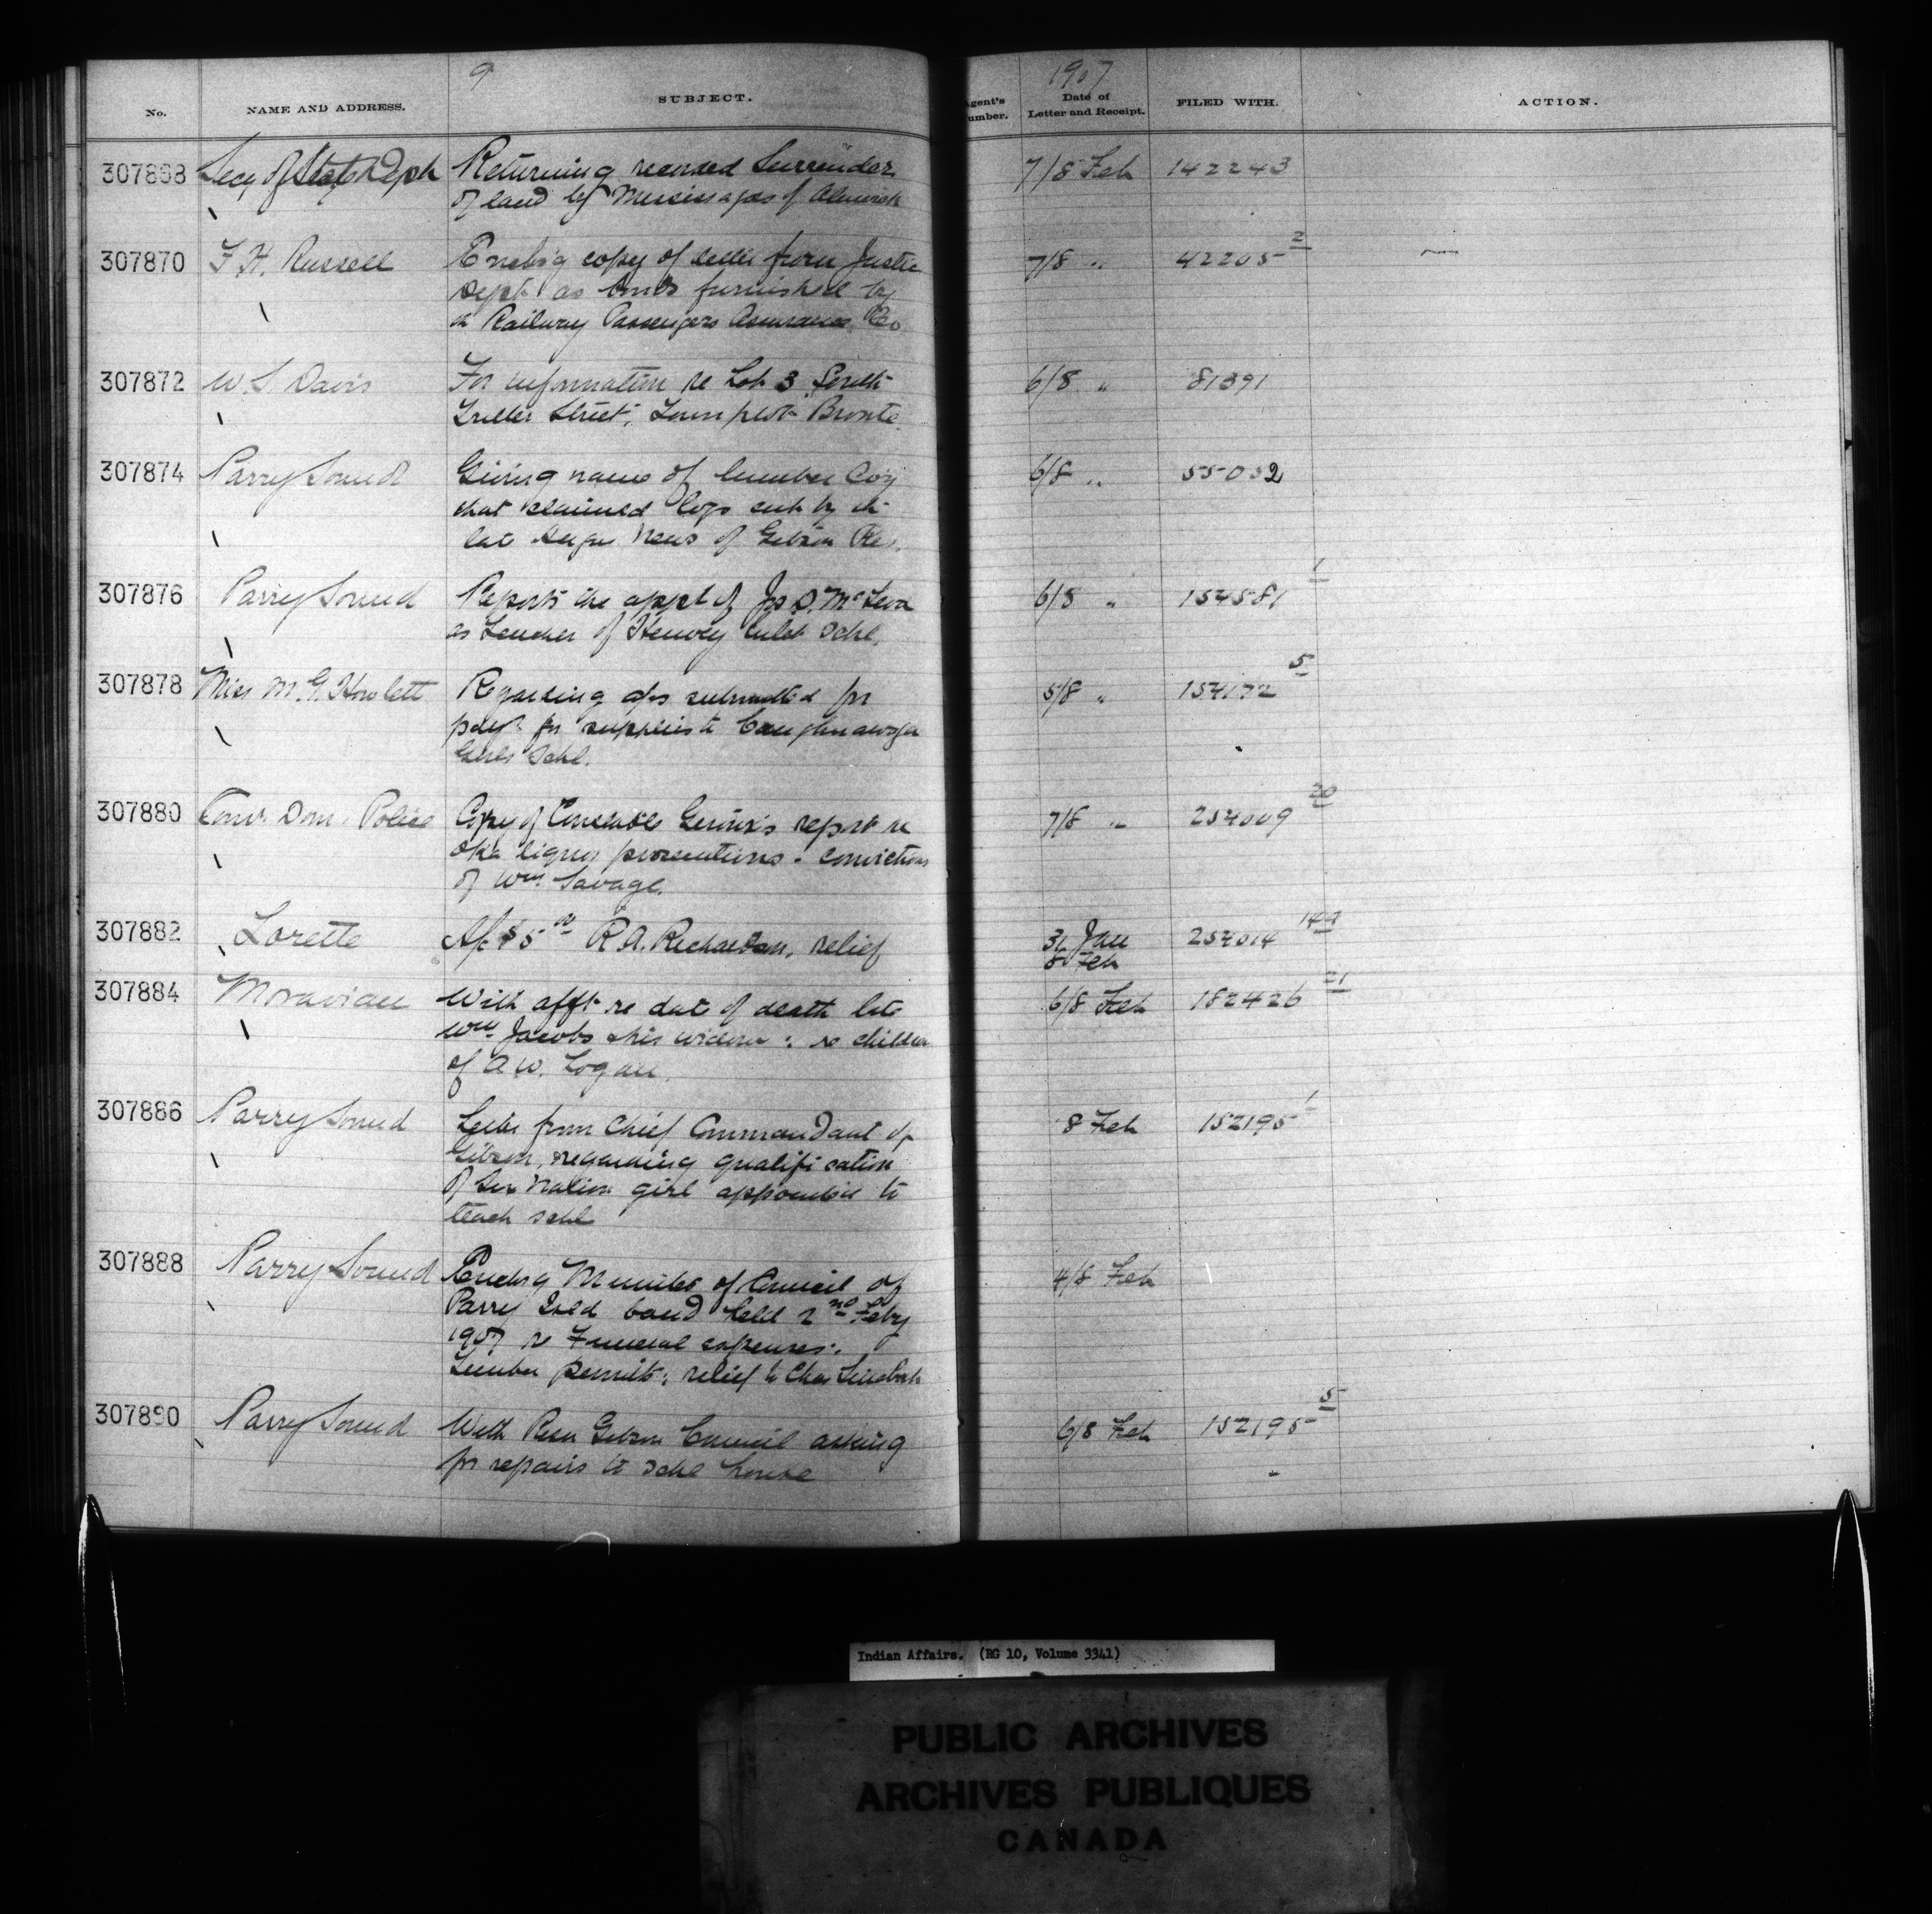 9
1907
No. NAME AND ADDRESS. SUBJECT. Agent's Number. Date of Letter and Receipt. FILED WITH. ACTION.
307868 Secy of State Dept Returning recorded Surrender 7/8 Feb 142243
of land by Mississagas of Alnwick
307870 F. H. Russell Enclos'g copy of letter from Justice 7/8 " 42205 2
Dept as bonds furnished by
th Railway Passengers Assurance Co
307872 W. S. Davis For information re Lot 3 South 6/8 " 81391
Triller Street, Town plot Bronte
307874 Parry Sound Giving name of lumber Co'y 6/8 " 55032
that claimed logs cut by th
late News of Gibson Res.
307876 Parry Sound Reports the appt of Jos D. McLean 6/8 " 154581 1
as Teacher of Henvey Inlet Schl.
307878 Miss M. G. Howlett Regarding a/cs submitted for 5/8 " 154172 5
paymt for supplies to Caughnawaga
Girls Schl.
307880 Com'r Dom. Police Copy of Constable Giroux's report re 7/8 " 254009 20
Oka liquor prosecutions - convictions
of Wm. Savage.
307882 Lorette A/c $5 00 R. A. Richardson, relief 31 Jan 254014 149
8 Feb
307884 Moravian With afft re date of death late 6/8 Feb 182426 21
Wm Jacobs & his widow : re children
of A. W. Logan.
307886 Parry Sound Letter from Chief Commandant of 8 Feb 152195 1
Gibson, regarding qualification
of Six Nation girl appointed to
teach schl
307888 Parry Sound Enclos'g Minutes of Council of 4/8 Feb
Parry Isld band held 2nd Feby
1907 re Funeral expenses:
Timber permit: relief to Chas
307890 Parry Sound With Resn Gibson Council asking 6/8 Feb 152195 5
for repairs to schl house
Indian Affairs. (RG 10, Volume 3341)
PUBLIC ARCHIVES
ARCHIVES PUBLIQUES
CANADA